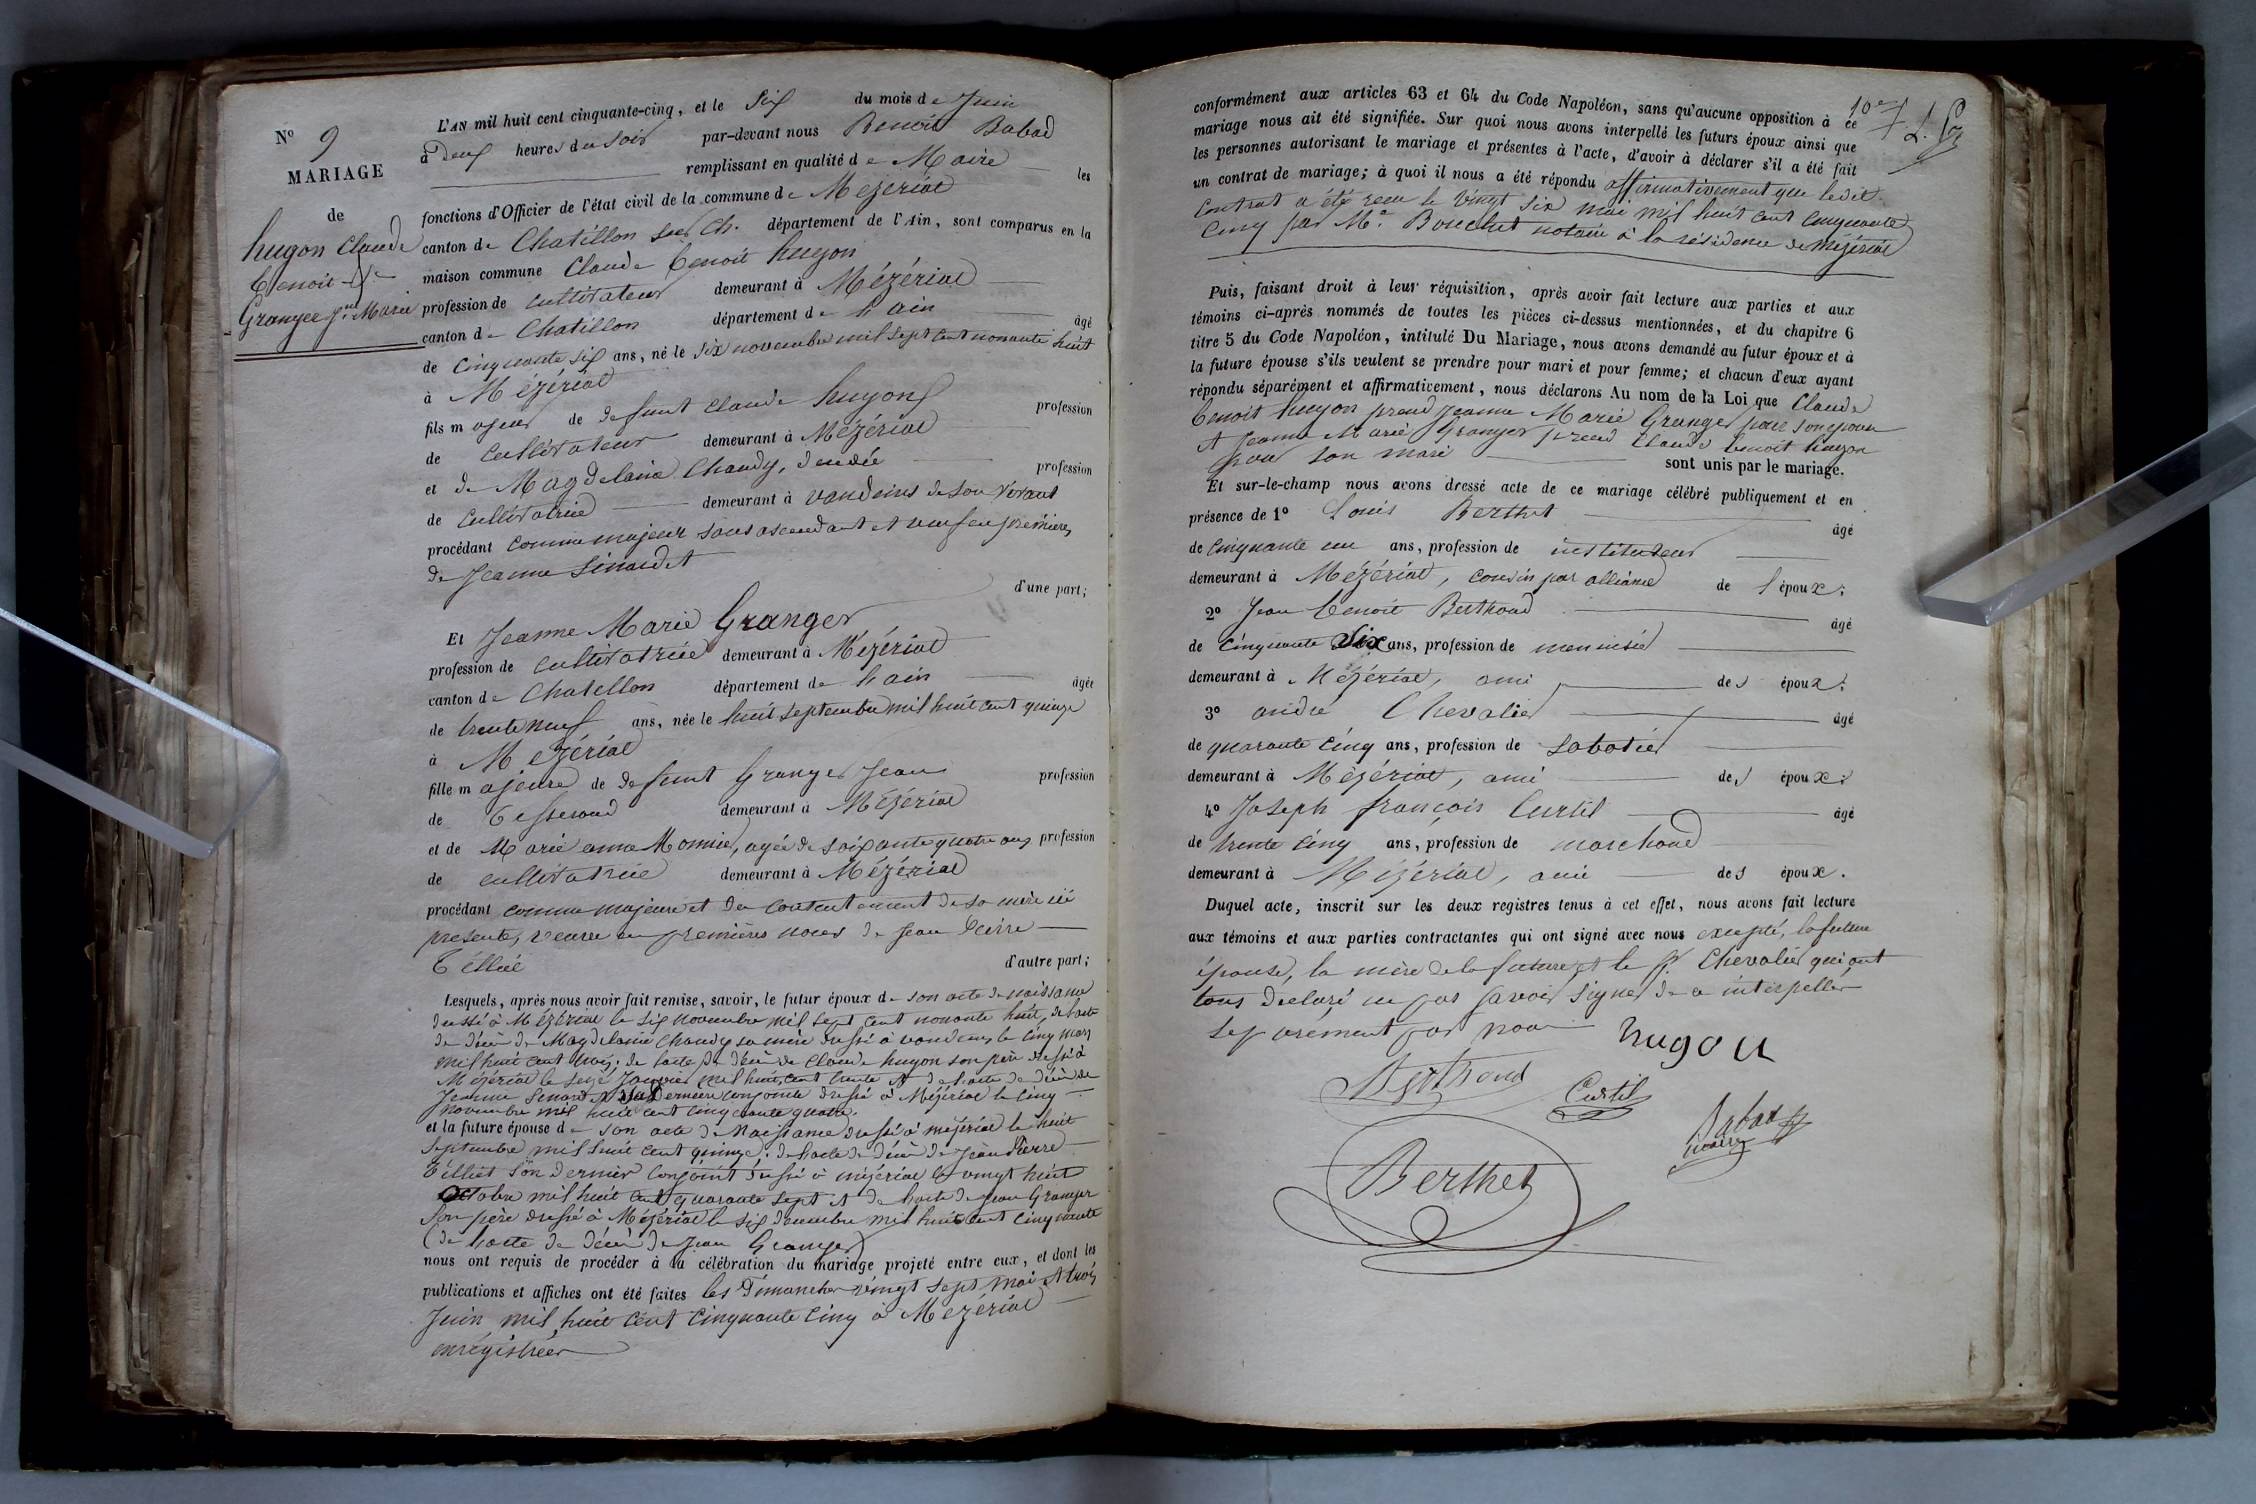 N° 9
MARIAGE
de
hugon Claude
Benoit &
Granger Jne Marie
L'AN mil huit cent cinquante-cinq, et le Six du mois de Juin
à Deux heures du Soir par-devant nous Benoit Babad
remplissant en qualité de Maire les
fonctions d'Officier de l'état civil de la commune de Mézériat
canton de Chatillon sur Ch. département de l'Ain, sont comparus en la
maison commune Claude benoit hugon
profession de cultivateur demeurant à Mézériat
canton de Chatillon département de l'ain âgé
de Cinquante six ans, né le Six novembre mil sept cent nonante huit
à Mézériat
fils majeur de defunt Claude hugon profession
de Cultivateur demeurant à Mézériat
et de Magdelaine Chaudy, décédée profession
de Cultivatrice demeurant à Vandeins de son vivant
procédant comme majeur sans ascendant et veuf en premières
de Jeanne Sinardet
d'une part;
Et Jeanne Marie Granger
profession de cultivatrice demeurant à Mézériat
canton de Chatillon département de l'ain âgée
de trente neuf ans, née le huit Septembre mil huit cent quinze
à Mézériat
fille majeure de defunt Granger Jean profession
de Tisserand demeurant à Mézériat
et de Marie anne Monnier, agée de soixante quatre ans profession
de cultivatrice demeurant à Mézériat
procédant comme majeure et du consentement de sa mère ici
présente, veuve en premières noces de Jean Pierre
Tillier d'autre part;
Lesquels, après nous avoir fait remise, savoir, le futur époux de son acte de naissance
dressé à Mézériat le Six Novembre mil sept cent nonante huit, de l'acte
de décès de Magdelaine Chaudy sa mère dressé à vandeins le Cinq mars
mil huit cent trois; de l'acte de décès de Claude hugon son père dressé à
Mézériat le seize Janvier mil huit cent trente et de l'acte de décès de
Jeanne Sinardet sa dernière conjointe dressé à Mézériat le cinq
novembre mil huit cent cinquante quatre.
et la future épouse de son acte de Naissance dressé à mézériat le huit
septembre mil huit cent quinze; de l'acte de décès de Jean Pierre
Tilliet son dernier conjoint dressé à mézériat le vingt huit
octobre mil huit cent quarante sept et de l'acte de Jean Granger
son père dressé à Mézériat le six décembre mil huit cent cinquante
(de l'acte de décès de Jean Granger)
nous ont requis de procéder à la célébration du mariage projeté entre eux, et dont les
publications et affiches ont été faites les Dimanches vingt sept mai et trois
Juin mil huit cent cinquante cinq à Mézériat
enrégistrées
10e
conformément aux articles 63 et 64 du Code Napoléon, sans qu'aucune opposition à ce
mariage nous ait été signifiée. Sur quoi nous avons interpellé les futurs époux ainsi que
les personnes autorisant le mariage et présentes à l'acte, d'avoir à déclarer s'il a été fait
un contrat de mariage; à quoi il nous a été répondu affirmativement que ledit
Contrat a été reçu le vingt six mai mil huit cent cinquante
cinq par Me Bouchet notaire à la résidence de Mézériat
Puis, faisant droit à leur réquisition, après avoir fait lecture aux parties et aux
témoins ci-après nommés de toutes les pièces ci-dessus mentionnées, et du chapitre 6
titre 5 du Code Napoléon, intitulé Du Mariage, nous avons demandé au futur époux et à
la future épouse s'ils veulent se prendre pour mari et pour femme; et chacun d'eux ayant
répondu séparément et affirmativement, nous déclarons Au nom de la Loi que Claude
benoit hugon prend Jeanne Marie Granger pour son épouse
et Jeanne Marie Granger prend Claude benoit hugon
pour son mari sont unis par le mariage.
Et sur-le-champ nous avons dressé acte de ce mariage célébré publiquement et en
présence de 1° Louis Berthet âgé
de Cinquante un ans, profession de instituteur
demeurant à Mézériat, cousin par alliance de l'époux;
2° Jean benoit Berthoud âgé
de Cinquante six ans, profession de menuisier
demeurant à Mézériat, ami des époux;
3° andré Chevalier âgé
de quarante cinq ans, profession de sabotier
demeurant à Mézériat, ami des époux;
4° Joseph françois Curtil âgé
de trente cinq ans, profession de marchand
demeurant à Mézériat, ami des époux.
Duquel acte, inscrit sur les deux registres tenus à cet effet, nous avons fait lecture
aux témoins et aux parties contractantes qui ont signé avec nous excepté, la future
épouse, la mère de la future et le Sr Chevalier qui ont
tous déclaré ne pas savoir signer de ce interpellés
séparément par nous
hugon
Berthoud
Curtil
Babad
maire
Berthet